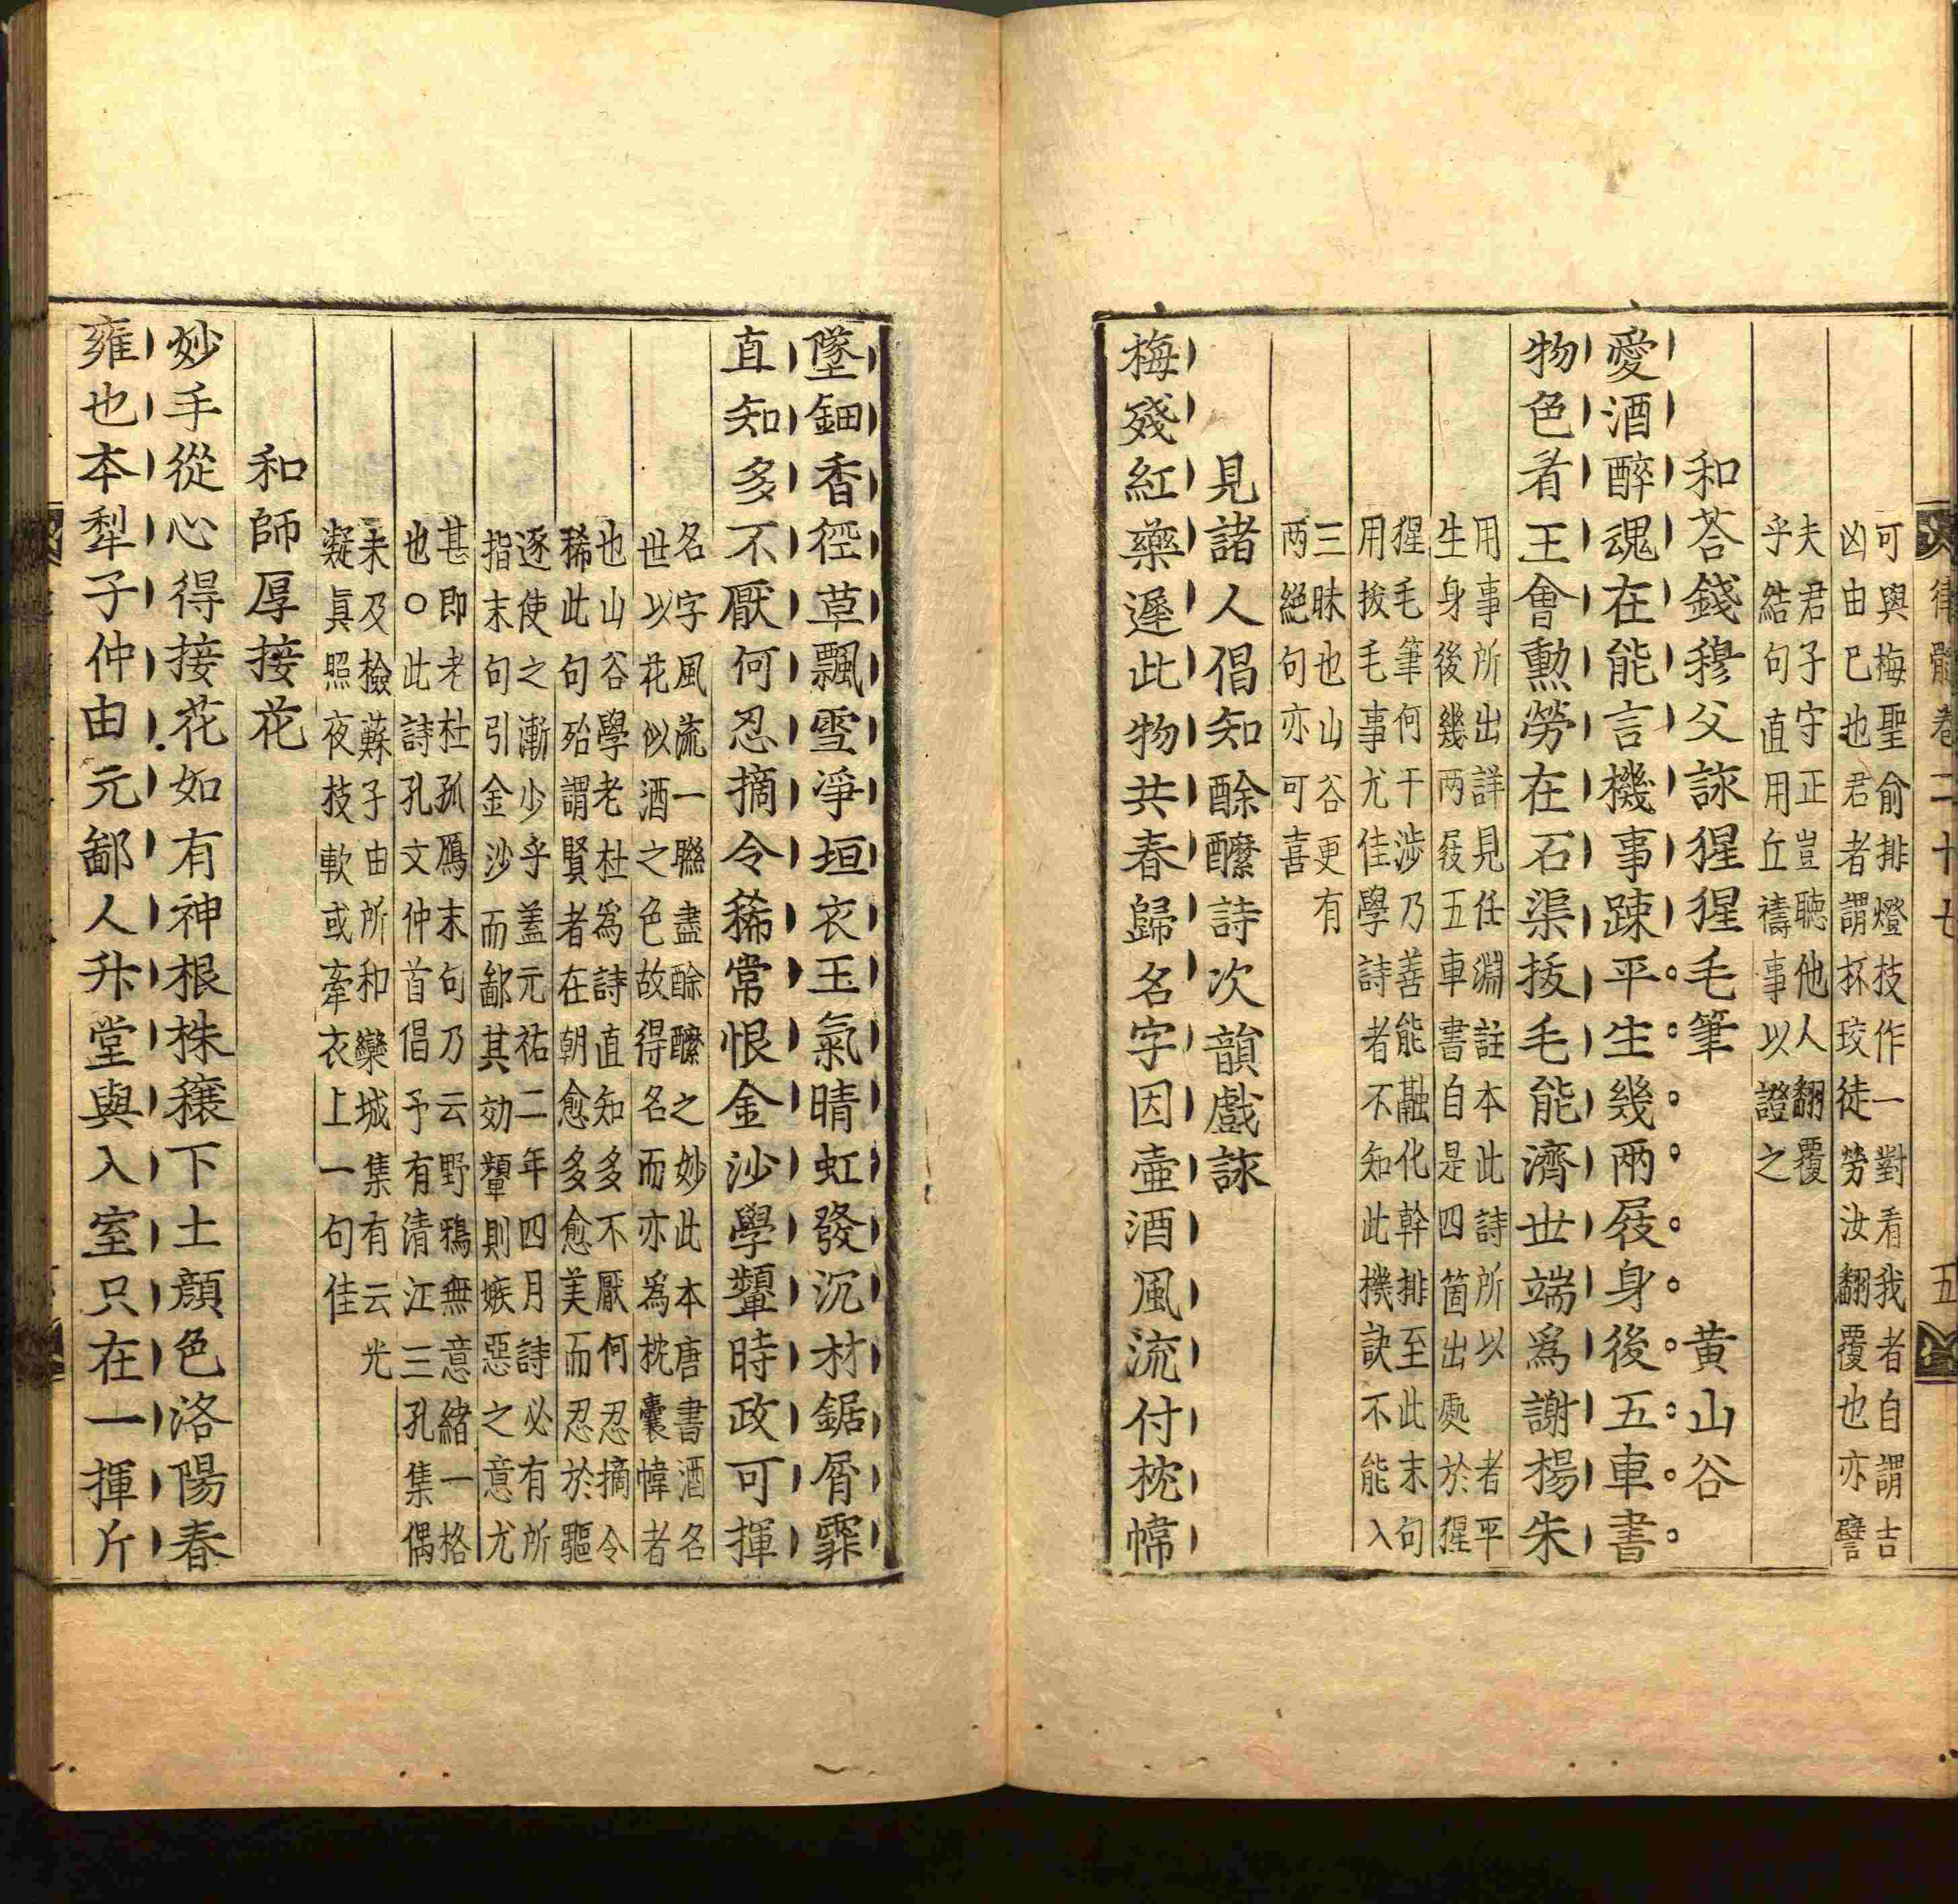 律髓卷二十七
五
可與梅聖俞排燈技作一對看我者自謂吉
凶由巳也君者謂抔珓徒勞汝翻覆也亦譬
夫君子守正豈聽他人翻覆
乎結句直用丘禱事以證之
和荅錢穆父詠猩猩毛筆 黄山谷
愛酒醉魂在能言機事踈平生幾兩屐身後五車書
物色看王會勳勞在石渠拔毛能濟世端爲謝楊朱
用事所出詳見任淵註本此詩所以者平
生身後幾两屐五車書自是四箇出處於猩
猩毛筆何干渉乃善能融化斡排至此末句
用拔毛事尤佳學詩者不知此機訣不能入
三昧也山谷更有
两絕句亦可喜
見諸人倡知酴醾詩次韻戲詠
梅殘紅藥遲此物共春歸名字因壷酒風流付枕幃
墜鈿香徑草飄雪凈垣衣玉氣晴虹發沉材鋸屑霏
直知多不厭何忍摘令稀常恨金沙學顰時政可揮
名字風流一聯盡酴醾之妙此本唐書酒名
世以花似酒之色故得名而亦爲枕囊幃者
也山谷學老杜為詩直知多不厭何忍摘令
稀此句殆謂賢者在朝愈多愈美而忍於驅
逐使之漸少乎盖元祐二年四月詩必有所
指末句引金沙而鄙其効顰則嫉惡之意尤
甚即老杜孤鴈末句乃云野鴉無意緒一格
也○此詩孔文仲首倡予有清江三孔集偶
未及撿蘇子由所和欒城集有云光
凝眞照夜技軟或牽衣上一句佳
和師厚接花
妙手從心得接花如有神根株穣下土顔色洛陽春
雍也本犁子仲由元鄙人升堂與入室只在一揮斤